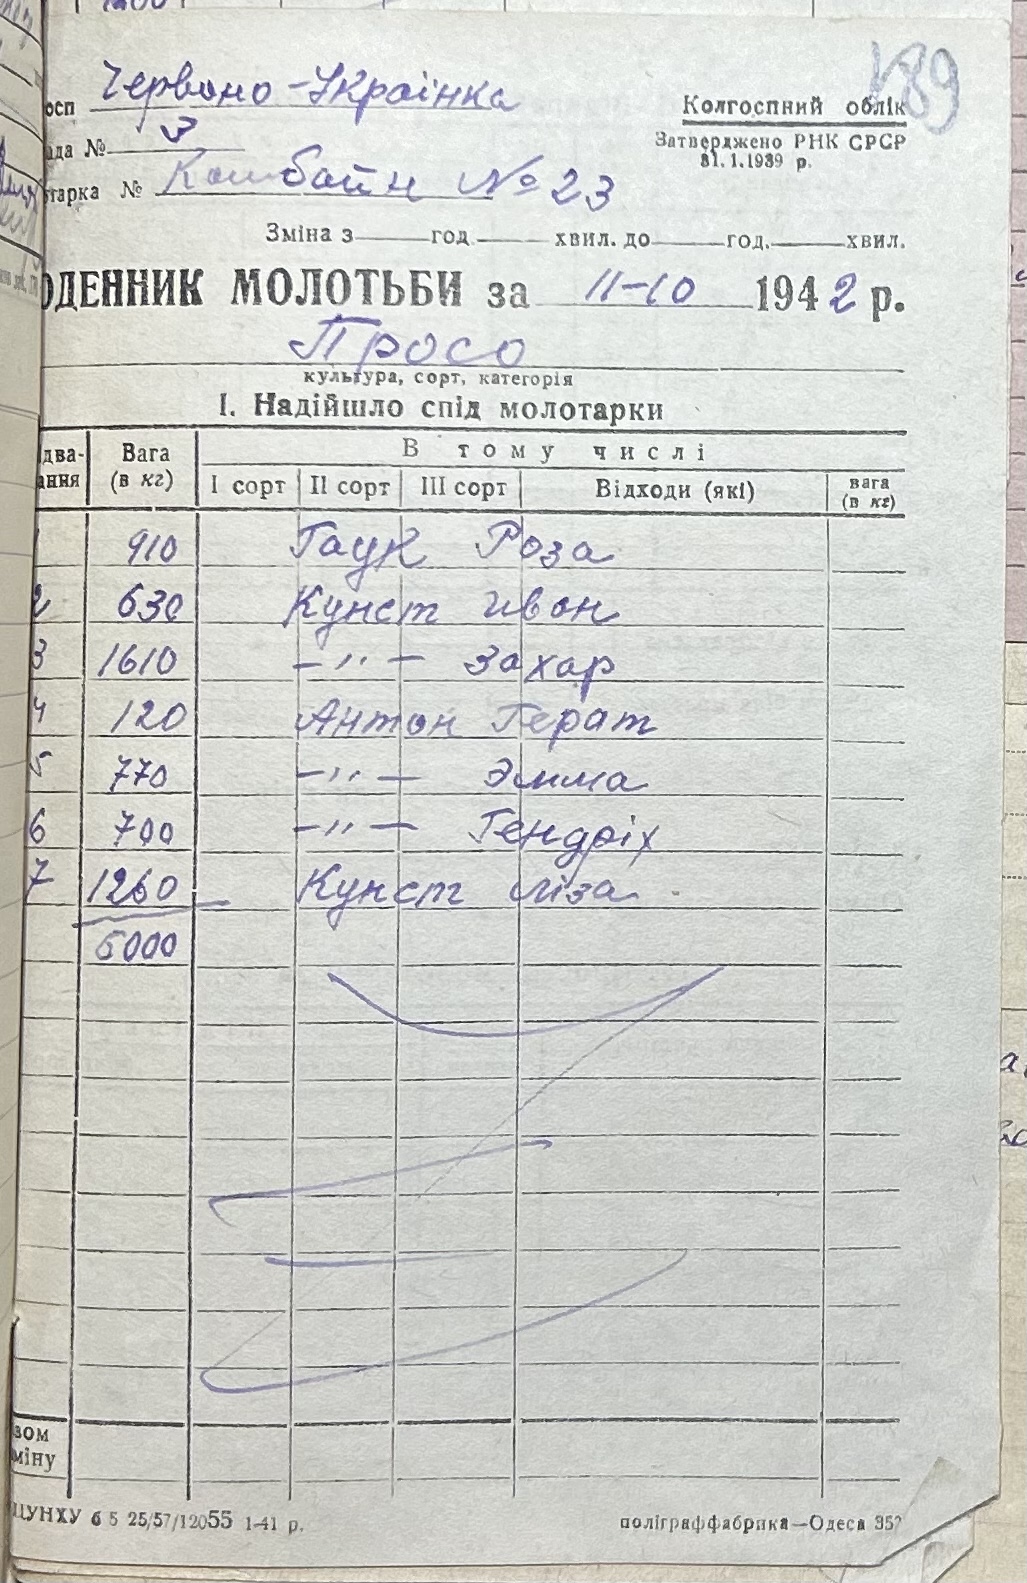 189
осп Червоно-Украінка
Колгоспний облік
ада № 3
Затверджено РНК СРСР
31.1.1939 р.
тарка № Комбайн № 23
Зміна з год хвил. до год. хвил.
ОДЕННИК МОЛОТЬБИ за 11-10 1942 р.
Просо
культура, сорт, категорія
I. Надійшло спід молотарки
два-
ання
Вага
(в кг)
В тому числі
I сорт II сорт III сорт Відходи (які) вага
(в кг)
1 910 Гаук Роза
2 630 Кунст Иван
3 1610 -"- Захар
4 120 Антон Герат
5 770 -"- Эмма
6 700 -"- Гендріх
7 1260 Кунст Ліза
6000
зом
міну
ЦУНХУ 6 5 25/57/12055 1-41 р.
поліграффабрика—Одеса 357